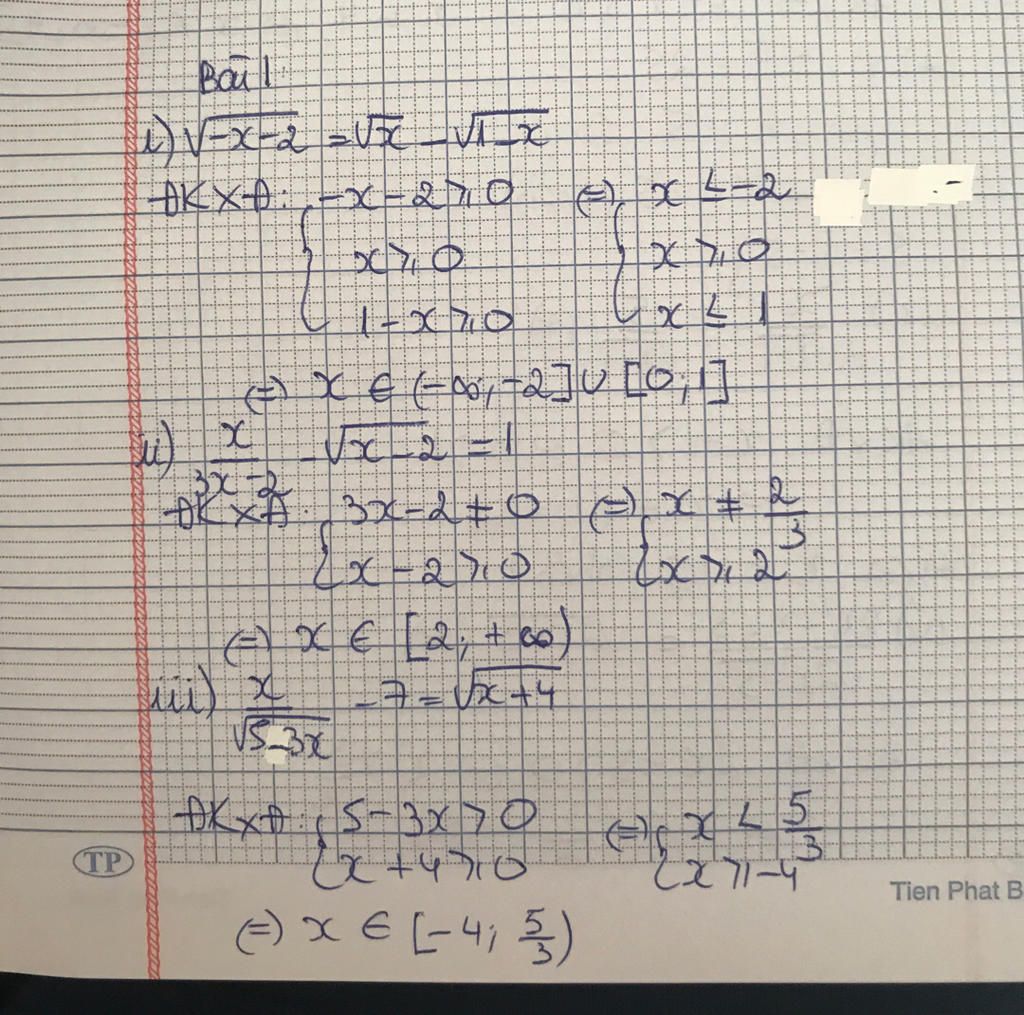 Bài 1:
i) √(-x-2) = √x - √(1-x)
ĐKXĐ: { -x-2 ⩾ 0 (=) { x ≤ -2
x ⩾ 0 x ⩾ 0
1-x ⩾ 0 x ≤ 1
(=) x ∈ (-∞; -2] ∪ [0; 1]
ii) x/(3x-2) - √(x-2) = 1
ĐKXĐ: { 3x-2 ≠ 0 (=) { x ≠ 2/3
x-2 ⩾ 0 x ⩾ 2
(=) x ∈ [2; +∞)
iii) x/√(5-3x) - 7 = √(x+4)
ĐKXĐ: { 5-3x > 0 (=) { x < 5/3
x+4 ⩾ 0 x ⩾ -4
TP
Tien Phat B
(=) x ∈ [-4; 5/3)